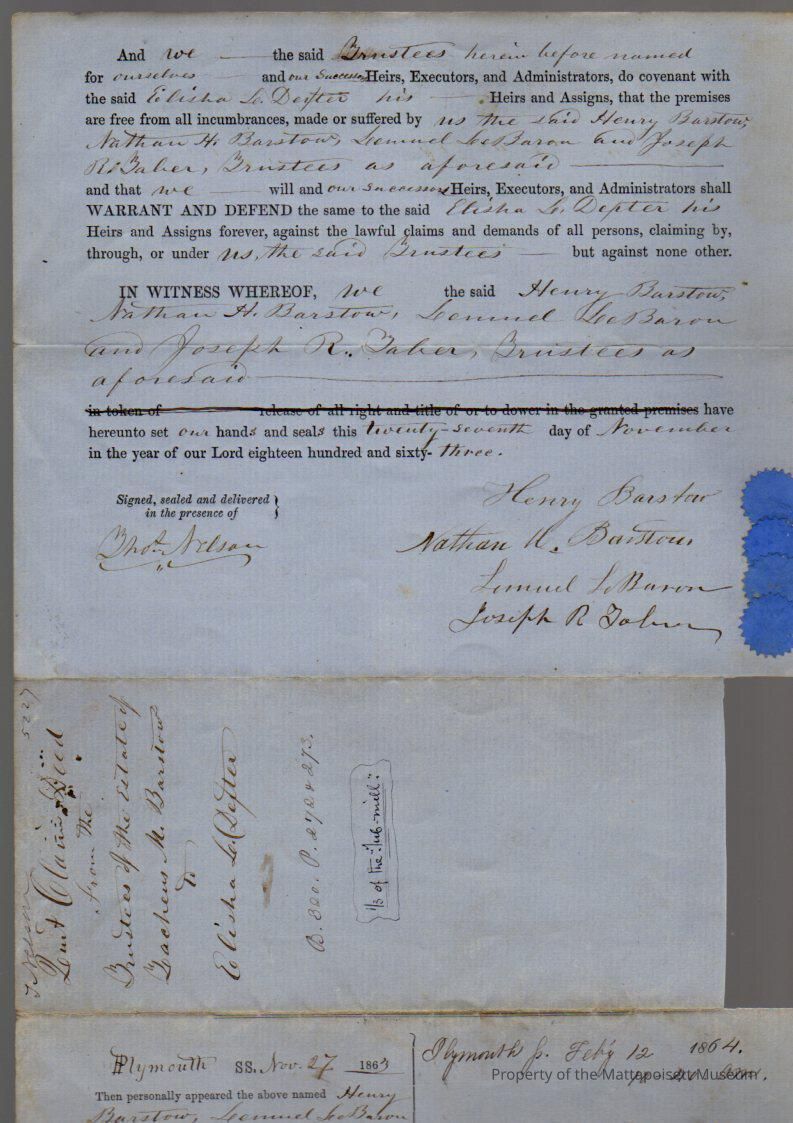 And we the said Trustees herein before named
for ourselves and our Successors Heirs, Executors, and Administrators, do covenant with
the said Elisha L. Dexter his Heirs and Assigns, that the premises
are free from all incumbrances, made or suffered by us the said Henry Barstow,
Nathan H. Barstow, Lemuel LeBaron and Joseph
R. Taber, Trustees as aforesaid
and that we will and our successors Heirs, Executors, and Administrators shall
WARRANT AND DEFEND the same to the said Elisha L. Dexter his
Heirs and Assigns forever, against the lawful claims and demands of all persons, claiming by,
through, or under us, the said Trustees but against none other.
IN WITNESS WHEREOF, we the said Henry Barstow,
Nathan H. Barstow, Lemuel LeBaron
and Joseph R. Taber, Trustees as
aforesaid
in token of release of all right and title of or to dower in the granted premises have
hereunto set our hands and seals this twenty-seventh day of November
in the year of our Lord eighteen hundred and sixty-three.
Signed, sealed and delivered
in the presence of
Thos. Nelson
Henry Barstow
Nathan H. Barstow
Lemuel LeBaron
Joseph R Taber
T Nelson 5227
Quit Claim Deed
From the
Trustees of the Estate of
Zacheus M. Barstow
To
Elisha L. Dexter
B. 320. P. 272 & 273.
1/3 of the "Tub-mill."
Plymouth SS. Nov. 27 1863
Then personally appeared the above named Henry
Barstow, Lemuel LeBaron
Plymouth ss. Feby 12 1864.
Property of the Mattapoisett Museum